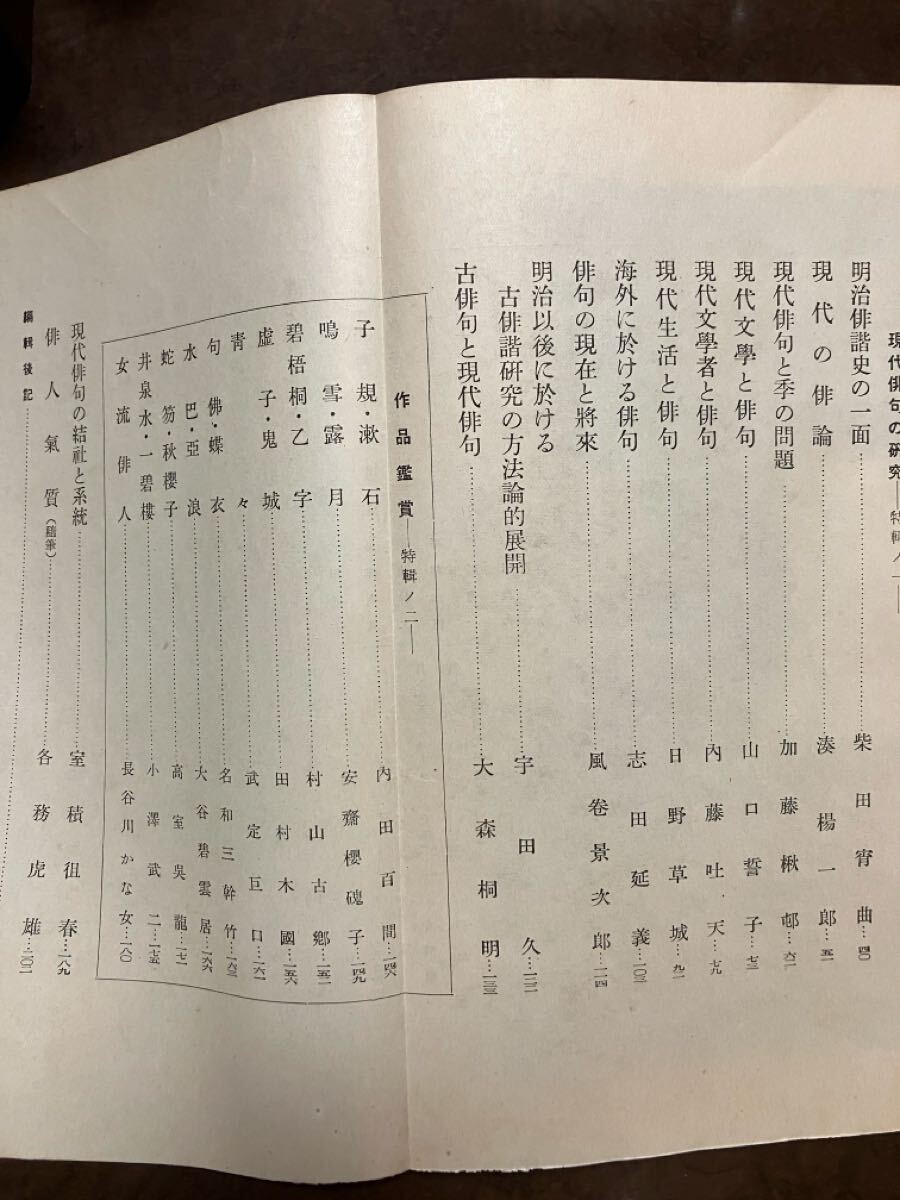 現代俳句の研究——特輯ノ一——
明治俳諧史の一面……柴田宵曲…四〇
現代の俳論……湊楊一郎…五一
現代俳句と季の問題……加藤楸邨…六二
現代文學と俳句……山口誓子…七三
現代文學者と俳句……內藤吐天…七九
現代生活と俳句……日野草城…九一
海外に於ける俳句……志田延義…一〇三
俳句の現在と將來……風卷景次郎…一一四
明治以後に於ける
古俳諧硏究の方法論的展開……宇田久…一二二
古俳句と現代俳句……大森桐明…一三三
作品鑑賞——特輯ノ二——
子規・漱石……內田百間…一四六
鳴雪・露月……安齋櫻磈子…一四九
碧梧桐・乙字……村山古鄕…一五二
虛子・鬼城……田村木國…一五六
靑々……武定巨口…一六一
句佛・蝶衣……名和三幹竹…一六三
水巴・亞浪……大谷碧雲居…一六六
蛇笏・秋櫻子……高室吳龍…一七一
井泉水・一碧樓……小澤武二…一七五
女流俳人……長谷川かな女…一八〇
現代俳句の結社と系統……室積徂春…一八九
俳人氣質（隨筆）……各務虎雄…二〇一
編輯後記……